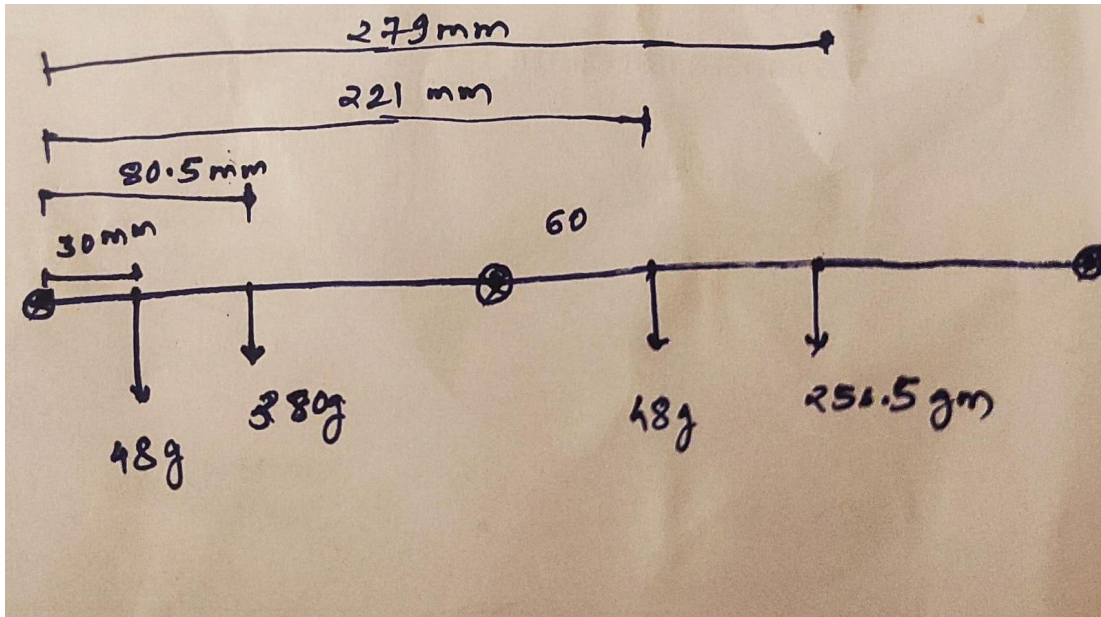 279mm
221 mm
80.5mm
30mm
60
48g
380g
48g